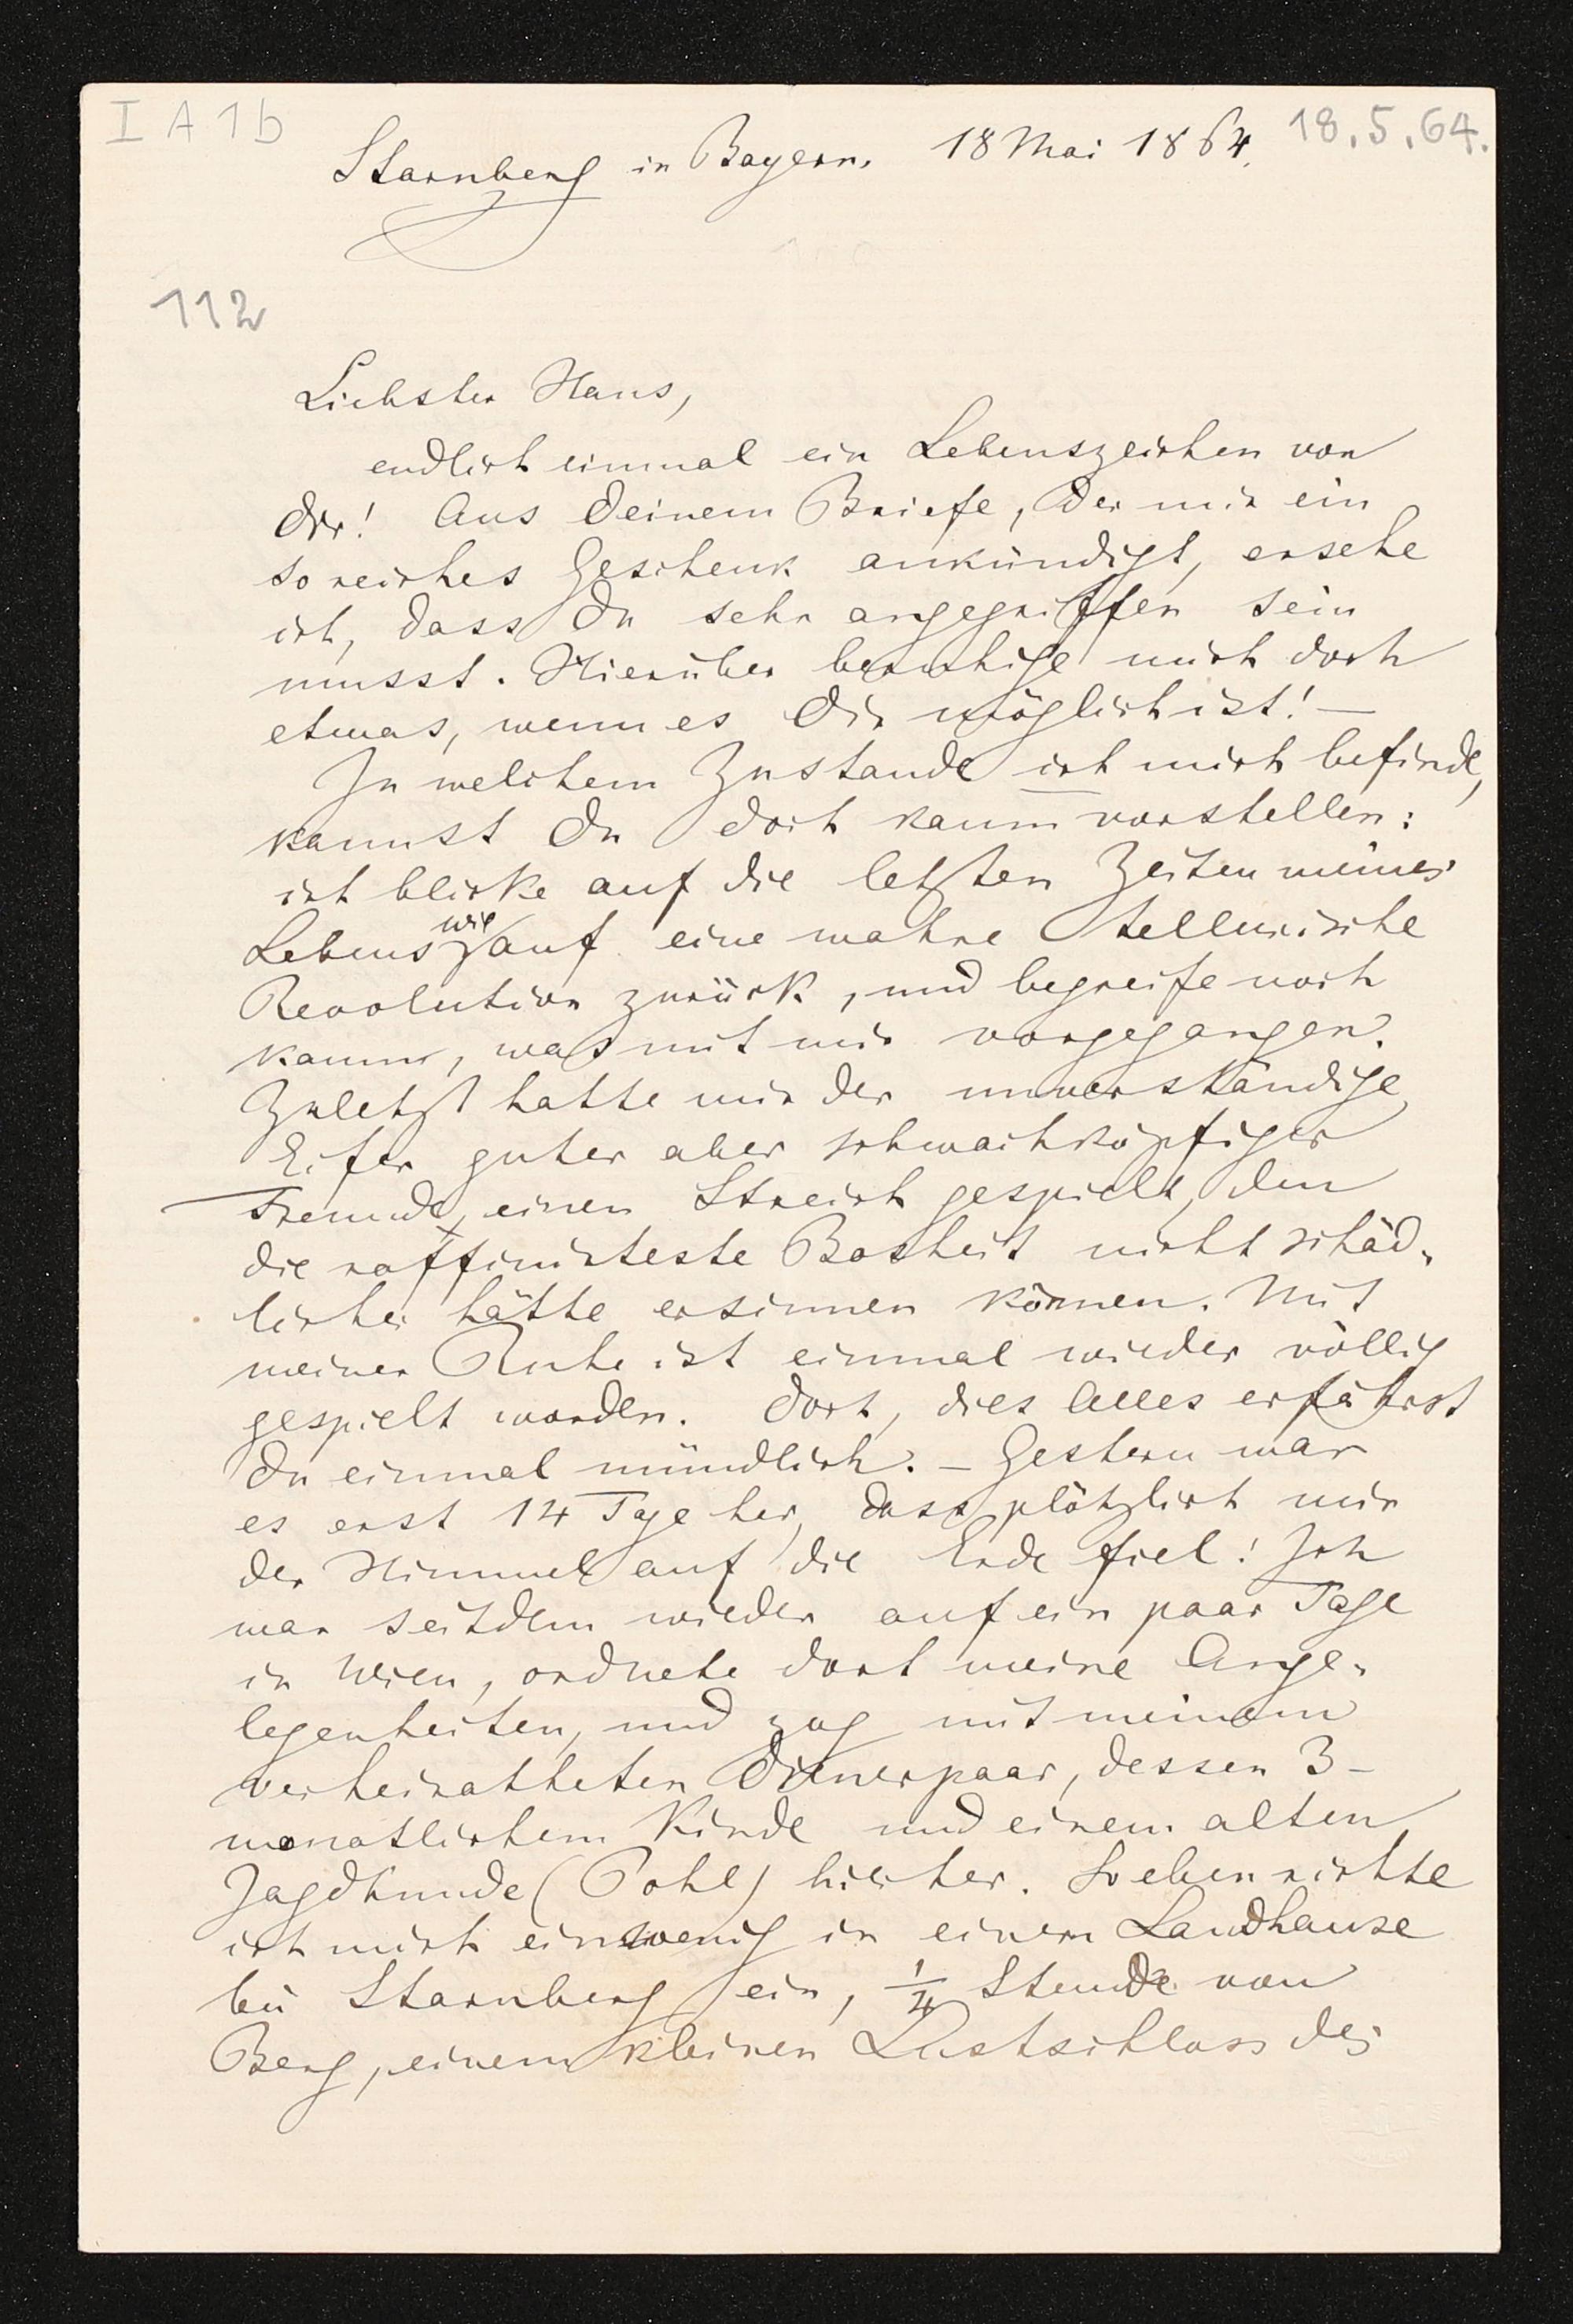 I A 1 b
Starnberg in Bayern. 18 Mai 1864. 18.5.64.
112
Liebster Hans,
endlich einmal ein Lebenszeichen von
Dir! Aus Deinem Briefe, der mir ein
so reiches Geschenk ankündigt, ersehe
ich, dass Du sehr angegriffen sein
musst. Hierüber beruhige mich doch
etwas, wenn es Dir möglich ist! —
In welchem Zustande ich mich befinde,
kannst Du doch kaum vorstellen:
ich blicke auf die letzten Zeiten meines
Lebens wie auf eine wahre tellurische
Revolution zurück, und begreife noch
kaum, was mit mir vorgegangen.
Zuletzt hatte mir der unverständige
Eifer guter aber schwachköpfiger
Freunde, einen Streich gespielt, den
die raffinirteste Bosheit nicht schäd-
licher hätte ersinnen können. Mit
meiner Ruhe ist einmal wieder völlig
gespielt worden. Doch, dies Alles erfährst
Du einmal mündlich. — Gestern war
es erst 14 Tage her, dass plötzlich mir
der Himmel auf die Erde fiel! Ich
war seitdem wieder auf ein paar Tage
in Wien, ordnete dort meine Ange-
legenheiten, und zog mit meinem
verheiratheten Dienerpaar, dessen 3-
monatlichem Kinde und einem alten
Jagdhunde (Pohl) hierher. Soeben richte
ich mich ein wenig in einem Landhause
bei Starnberg ein, 1/4 Stunde von
Berg, einem kleinen Lustschloss des